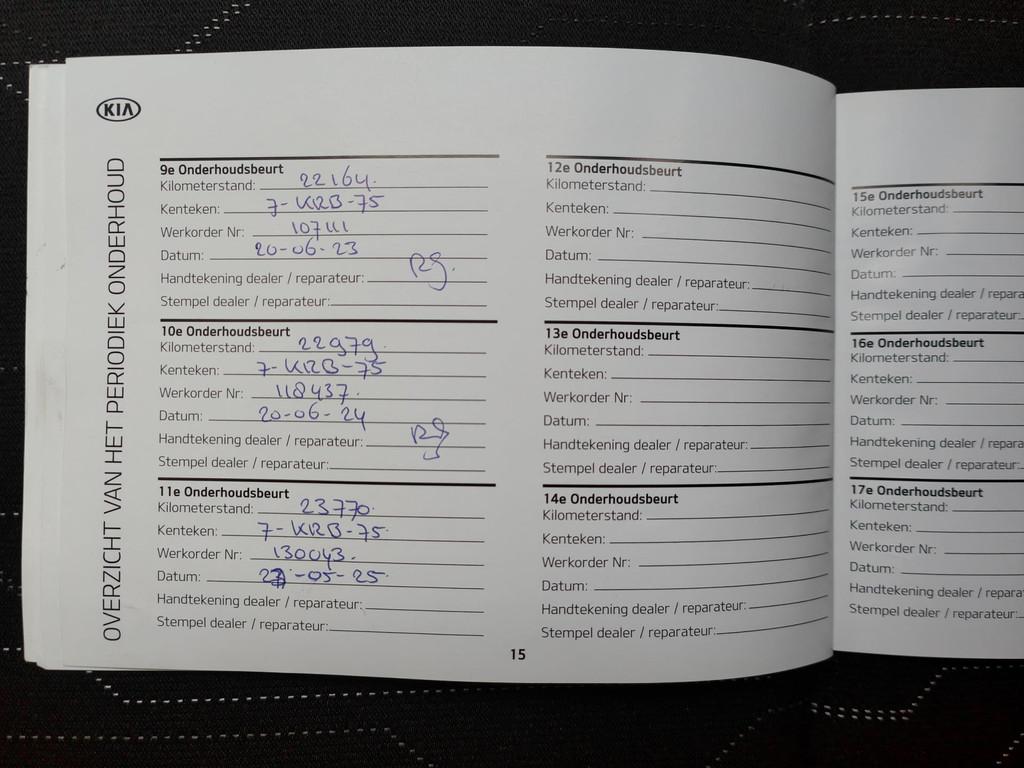 KIA
OVERZICHT VAN HET PERIODIEK ONDERHOUD
9e Onderhoudsbeurt
Kilometerstand: 22164.
Kenteken: 7-KRB-75
Werkorder Nr: 107111
Datum: 20-06-23
Handtekening dealer / reparateur:
Stempel dealer / reparateur:
10e Onderhoudsbeurt
Kilometerstand: 22979.
Kenteken: 7-KRB-75
Werkorder Nr: 118437.
Datum: 20-06-24
Handtekening dealer / reparateur:
Stempel dealer / reparateur:
11e Onderhoudsbeurt
Kilometerstand: 23770.
Kenteken: 7-KRB-75.
Werkorder Nr: 130043.
Datum: 27-05-25.
Handtekening dealer / reparateur:
Stempel dealer / reparateur:
12e Onderhoudsbeurt
Kilometerstand:
Kenteken:
Werkorder Nr:
Datum:
Handtekening dealer / reparateur:
Stempel dealer / reparateur:
13e Onderhoudsbeurt
Kilometerstand:
Kenteken:
Werkorder Nr:
Datum:
Handtekening dealer / reparateur:
Stempel dealer / reparateur:
14e Onderhoudsbeurt
Kilometerstand:
Kenteken:
Werkorder Nr:
Datum:
Handtekening dealer / reparateur:
Stempel dealer / reparateur:
15
15e Onderhoudsbeurt
Kilometerstand:
Kenteken:
Werkorder Nr:
Datum:
Handtekening dealer / repara
Stempel dealer / reparateur:
16e Onderhoudsbeurt
Kilometerstand:
Kenteken:
Werkorder Nr:
Datum:
Handtekening dealer / repara
Stempel dealer / reparateur:
17e Onderhoudsbeurt
Kilometerstand:
Kenteken:
Werkorder Nr:
Datum:
Handtekening dealer / repara
Stempel dealer / reparateur: